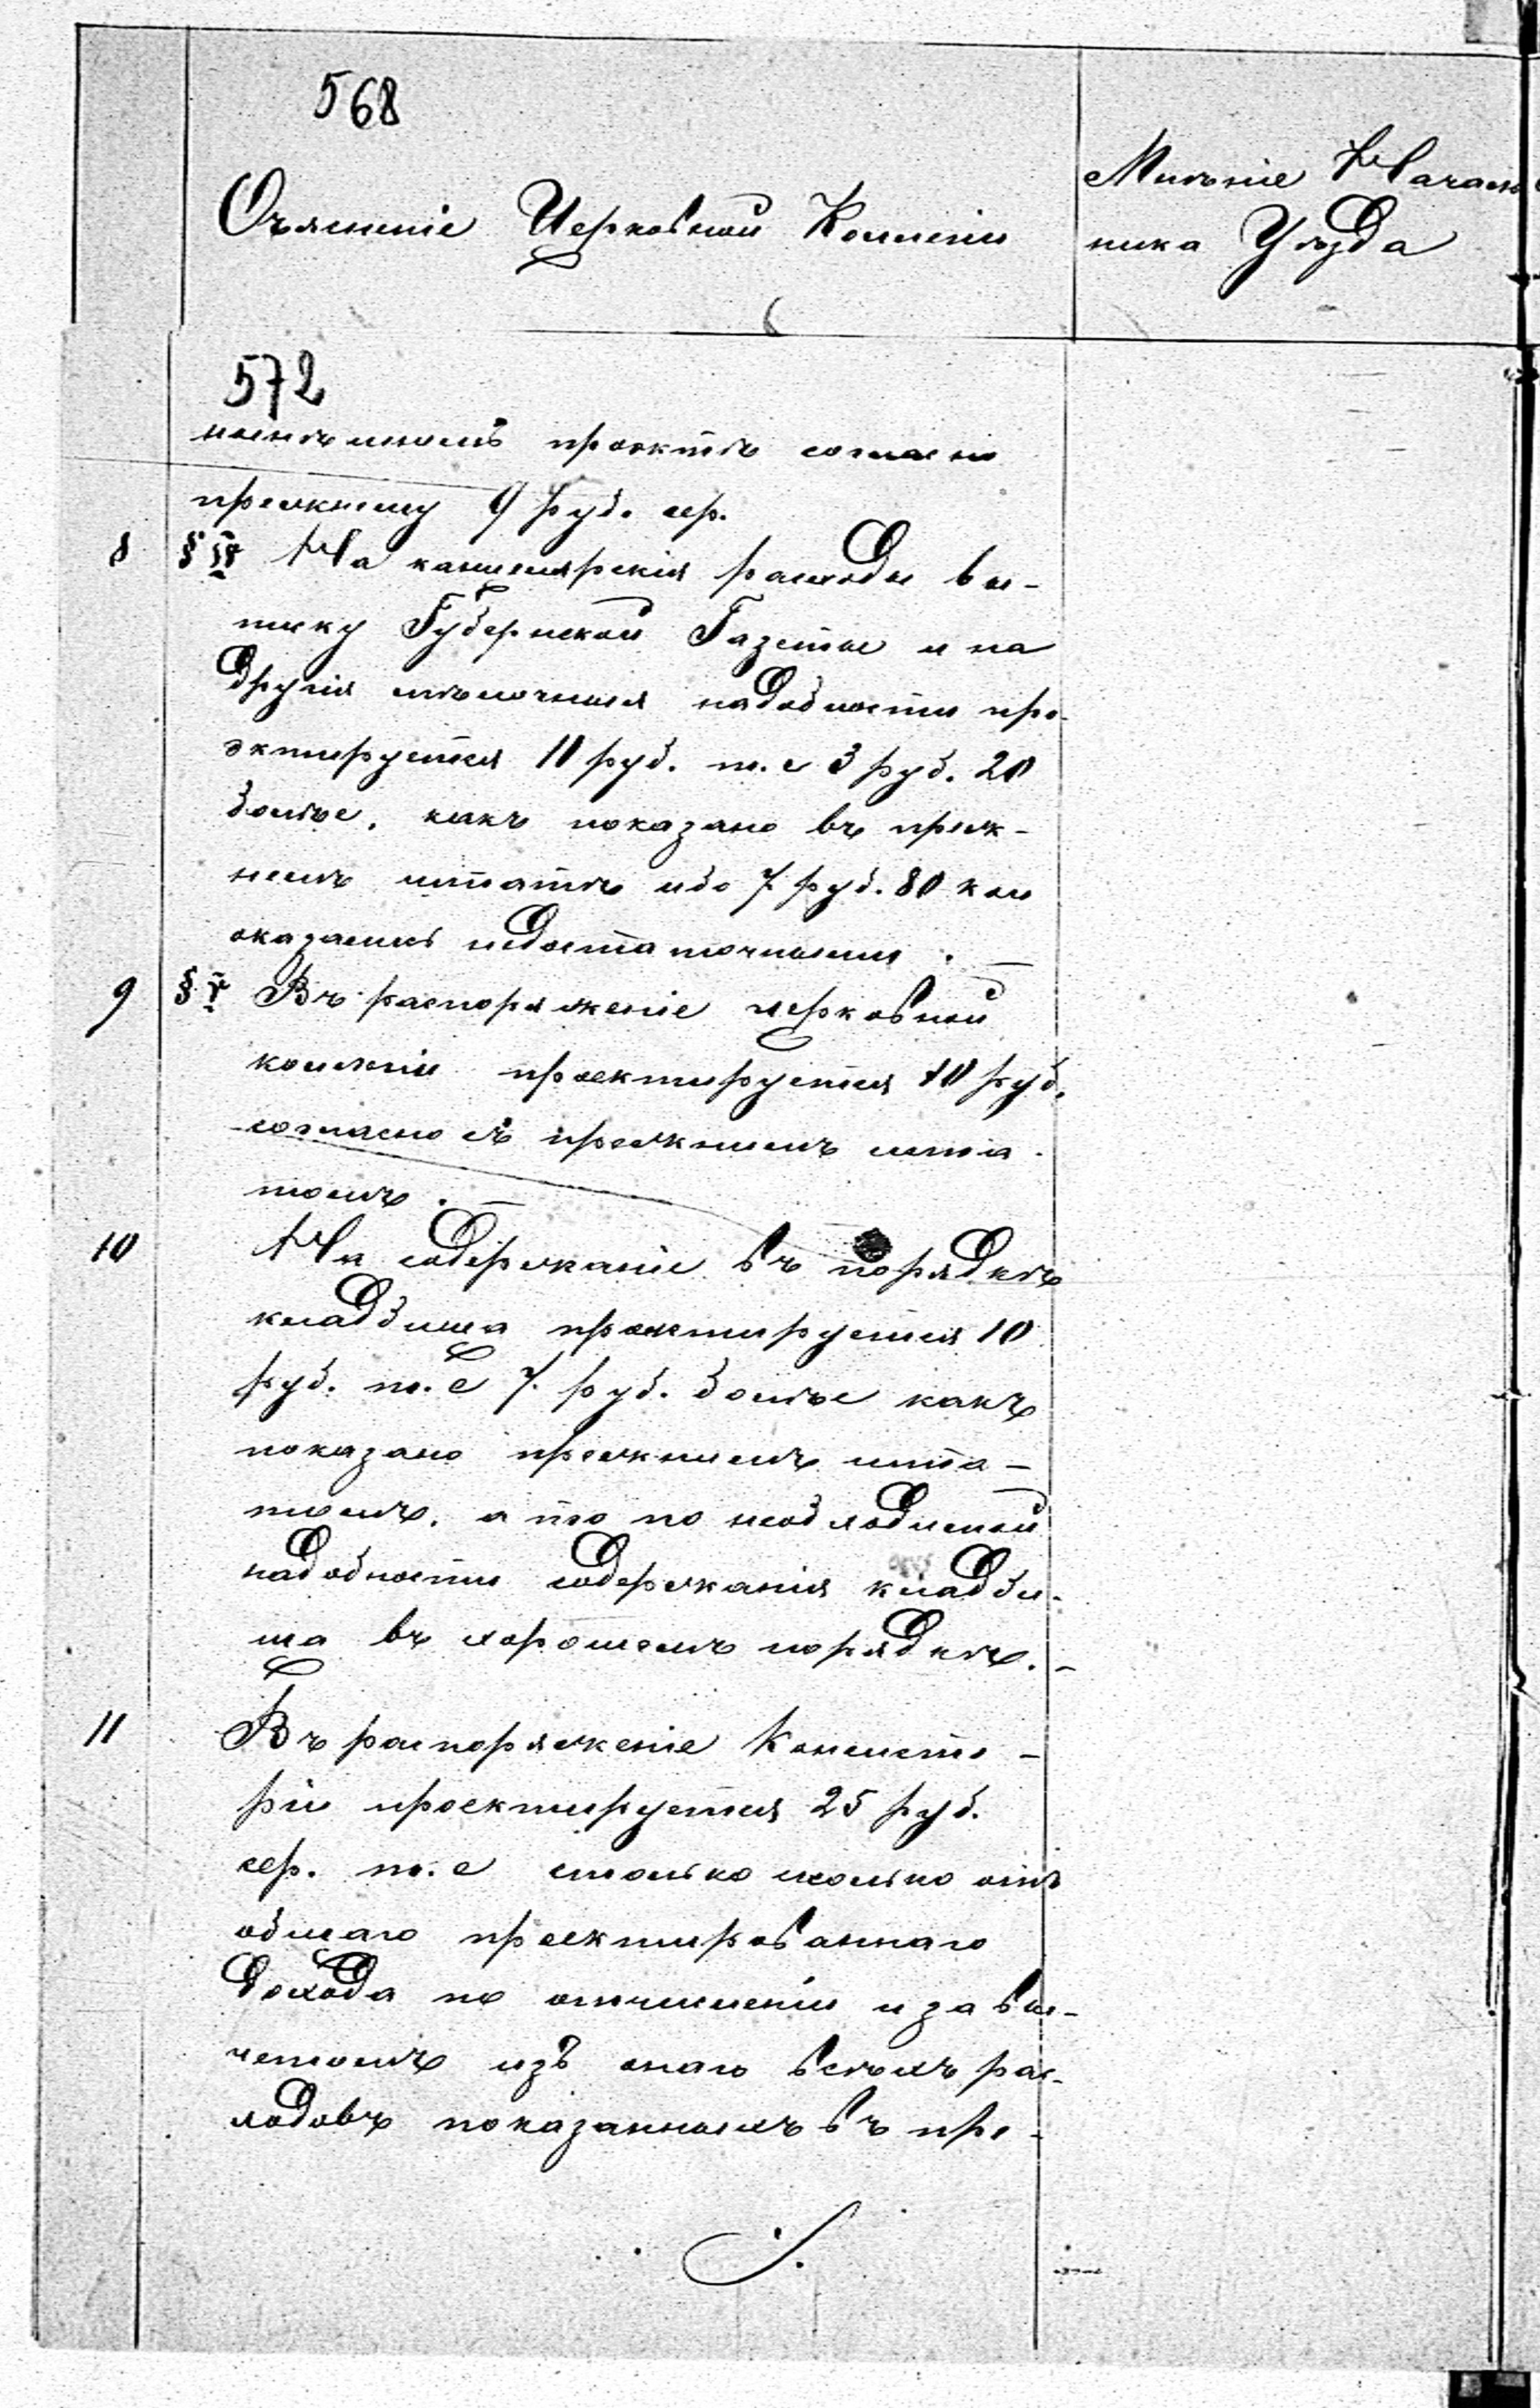 568
Объясненіе Церковной Коллегіи
Мнѣніе Началь
ника Уѣзда
572
нынѣшнемъ проэктѣ согласно
прежнему 9 руб. сер.
8 § IV На канцелярскія расходы вы-
писку Губернской Газеты и на
другія мѣлочныя надобности про-
эктируется 11 руб. т.е 3 руб. 20
болѣе, какъ показано въ преж-
немъ штатѣ ибо 7 руб. 80 коп
оказались недостаточными. —
9 § V Въ распоряженіе церковной
коллегіи проектируется 10 руб.
согласно съ прежнимъ шта-
томъ. —
10 На содержаніе въ порядкѣ
кладбища проектируется 10
руб. т.е 7 руб. болѣе какъ
показано прежнимъ шта-
томъ, а то по необходимой
надобности содержанія кладби-
ща въ хорошемъ порядкѣ. -
11 Въ распоряженіе Консисто-
ріи проектируется 25 руб.
сер. т.е столько сколько отъ
общаго проектированнаго
дохода по отчисленіи и за вы-
четомъ изъ онаго всѣхъ рас-
ходовъ показанныхъ въ про-